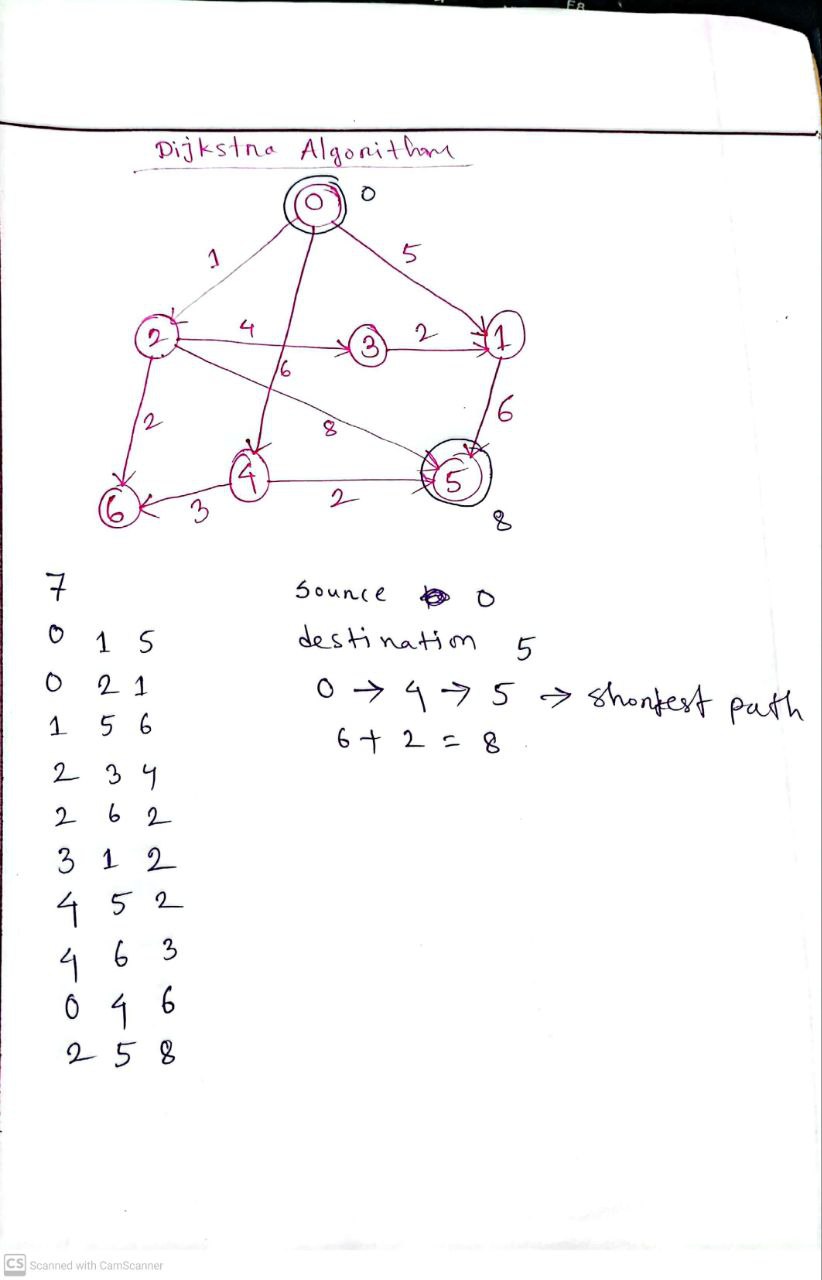 Dijkstna Algonithm
0 0
1 5
2 4 3 2 1
6
2 8 6
4 5
6 3 2
8
7
0 1 5
0 2 1
1 5 6
2 3 4
2 6 2
3 1 2
4 5 2
4 6 3
0 4 6
2 5 8
sounce 0
destination 5
0 → 4 → 5 → shontest path
6 + 2 = 8
CS Scanned with CamScanner